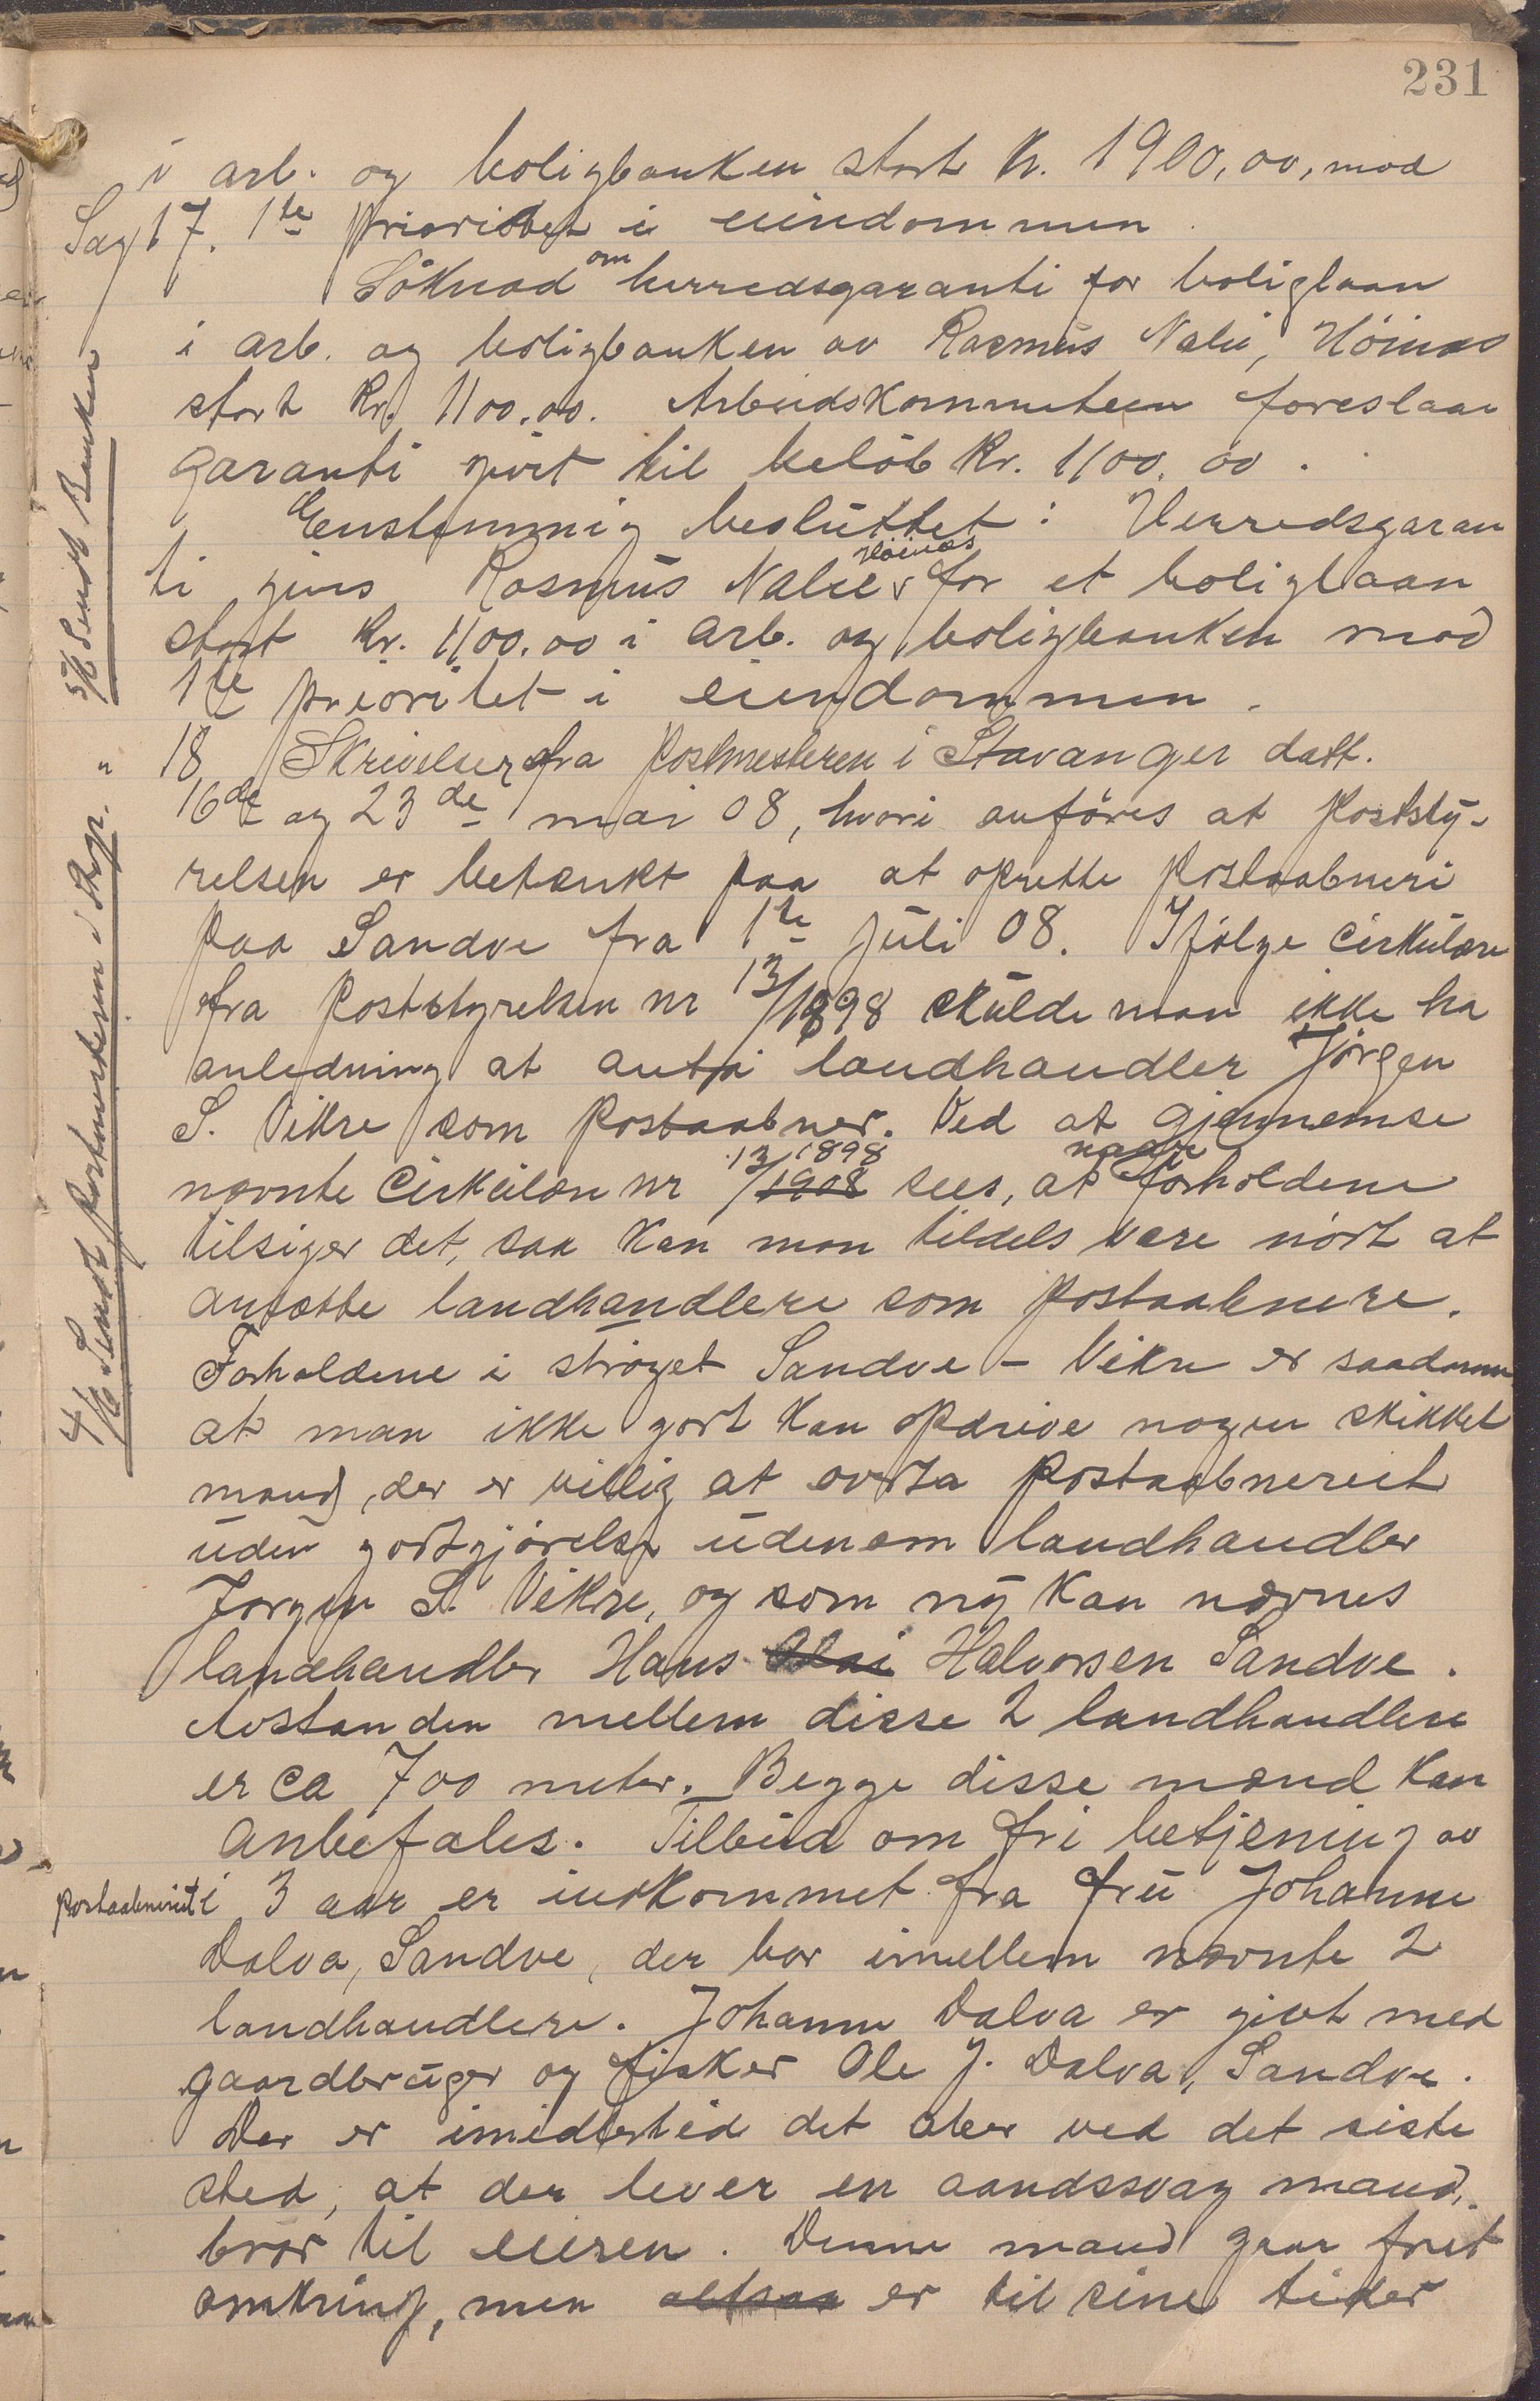 231
i arb. og boligbanken stort Kr. 1900,00, mod
Sag 17. 1te prioritet i eiendommen.
Söknad om herredsgaranti for boliglaan
i arb. og boligbanken av Rasmus Nalie, Höinæs
stort Kr. 1100.00. Arbeidskommiteen foreslaar
garanti givit til beløb Kr. 1100.00.
Enstemmig besluttet: Herredsgaran
ti givs Rasmus Nalie Höinæs for et boliglaan
stort Kr. 1100.00 i arb. og boligbanken mod
1te prioritet i eiendommen.
5/6 Sendt Banken
18 Skrivelser fra postmesteren i Stavanger datt.
16de og 23de mai 08, hvori anföres at poststy-
relsen er betænkt paa at oprette postaabneri
paa Sandve fra 1te juli 08. Ifølge cirkulære
fra poststyrelsen nr 13/1898 skulde man ikke ha
anledning at anta landhandler Jörgen
S. Vikre som postaabner. Ved at gjennemse
nævnte cirkulære nr 13/1908 1898 sees, at naar forholdene
tilsiger det, saa kan man tildels være nödt at
ansætte landhandlere som postaabnere.
Forholdene i ströget Sandve - Vikre er saadanne
at man ikke godt kan opdrive nogen skikket
mand, der er villig at overta postaabneriet
uden godtgjörelse udenom landhandler
Jörgen S. Vikre, og som ny kan nævnes
landhandler Hans Halvorsen Sandve.
Avstanden mellem disse 2 landhandlere
er ca 700 meter. Begge disse mænd kan
anbefales. Tilbud om fri betjening av
postaabneriet i 3 aar er indkommet fra fru Johanne
Dalva, Sandve, der bor imellem nævnte 2
landhandlere. Johanne Dalva er givt med
gaardbruger og fisker Ole J. Dalva, Sandve.
Der er imidlertid det aber ved det siste
sted, at der lever en aandssvag mand,
bror til eieren. Denne mand gaar frit
omkring, men altsaa er til sine tider
4/6 Sendt postmesteren i Stvgr. "